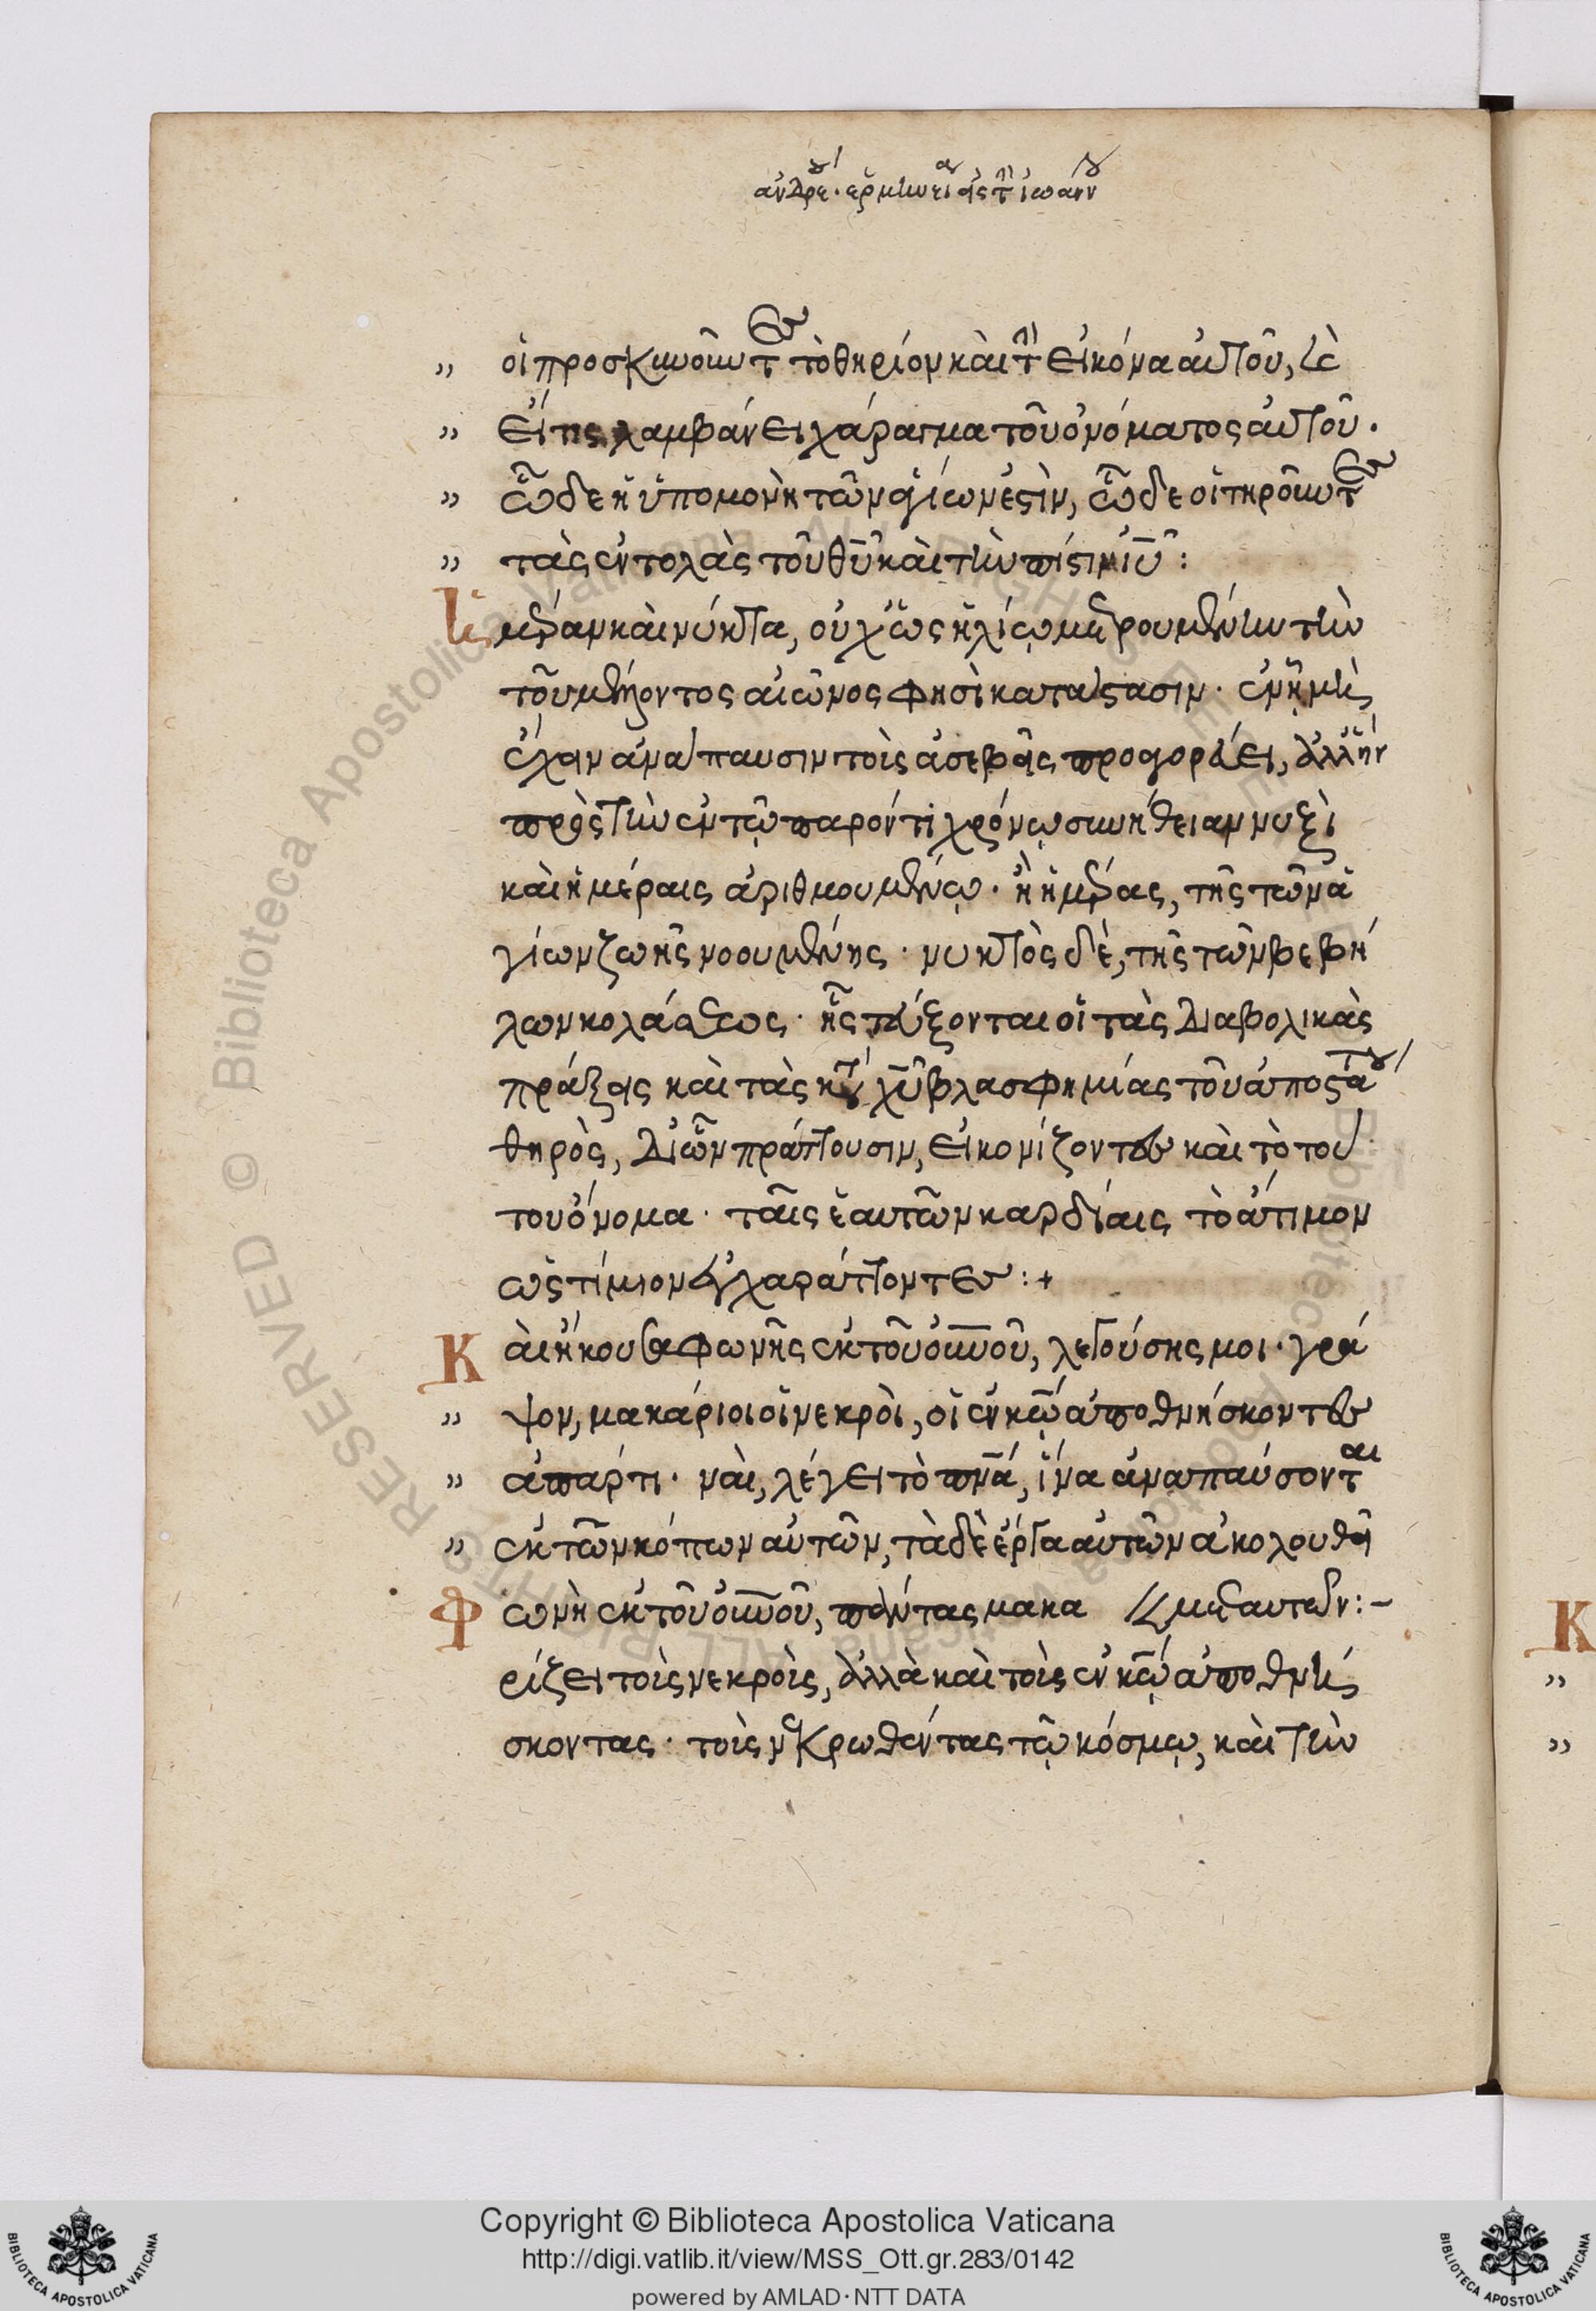 ἀνδρέου ἑρμηνεία εἰς τὴν ἰωάννου
οἱ προσκυνοῦντες τὸ θηρίον καὶ τὴν εἰκόνα αὐτοῦ, καὶ
εἴ τις λαμβάνει χάραγμα τοῦ ὀνόματος αὐτοῦ.
ὧδε ἡ ὑπομονὴ τῶν ἁγίων ἐστὶν, ὧδε οἱ τηροῦντες
τὰς ἐντολὰς τοῦ θυ καὶ τὴν πίστιν ιυ:
ἡμέραν καὶ νύκτα, οὐχ ὡς ἡλίῳ μετρουμένην τὴν
τοῦ μέλλοντος αἰῶνος φησὶ κατάστασιν. ἐν ᾗ μὴ
ἔχειν ἀνάπαυσιν τοῖς ἀσεβεῖς προαγορεύει, ἀλλ' ἢ
πρὸς τὴν ἐν τῷ παρόντι χρόνῳ συνήθειαν νυξὶ
καὶ ἡμέραις ἀριθμουμένῳ. ἢ ἡμέρας, τῆς τῶν ἁ
γίων ζωῆς νοουμένης. νυκτὸς δὲ, τῆς τῶν βεβή
λων κολάσεως. ἧς τεύξονται οἱ τὰς διαβολικὰς
πράξεις καὶ τὰς κατὰ χυ βλασφημίας τοῦ ἀποστάτου
θηρὸς, δι' ὧν πράττουσιν, εἰκονίζοντες καὶ τὸ τού
του ὄνομα. ταῖς ἑαυτῶν καρδίαις τὸ ἄτιμον
ὡς τίμιον ἐγχαράττοντες:+
Καὶ ἤκουσα φωνῆς ἐκ τοῦ οὐνοῦ, λεγούσης μοι. γρά
ψον, μακάριοι οἱ νεκροὶ, οἱ ἐν κω ἀποθνήσκοντες
ἀπάρτι. ναὶ, λέγει τὸ πνα, ἵνα ἀναπαύσονται
ἐκ τῶν κόπων αὐτῶν, τὰ δὲ ἔργα αὐτῶν ἀκολουθεῖ
μετ' αὐτῶν:-
Φωνὴ ἐκ τοῦ οὐνοῦ, οὐ πάντας μακα
ρίζει τοὺς νεκροὺς, ἀλλὰ καὶ τοὺς ἐν κω ἀποθνή
σκοντας. τοὺς νεκρωθέντας τῷ κόσμῳ, καὶ τὴν
Κ
Copyright © Biblioteca Apostolica Vaticana
http://digi.vatlib.it/view/MSS_Ott.gr.283/0142
powered by AMLAD·NTT DATA
BIBLIOTECA APOSTOLICA VATICANA
BIBLIOTECA APOSTOLICA VATICANA